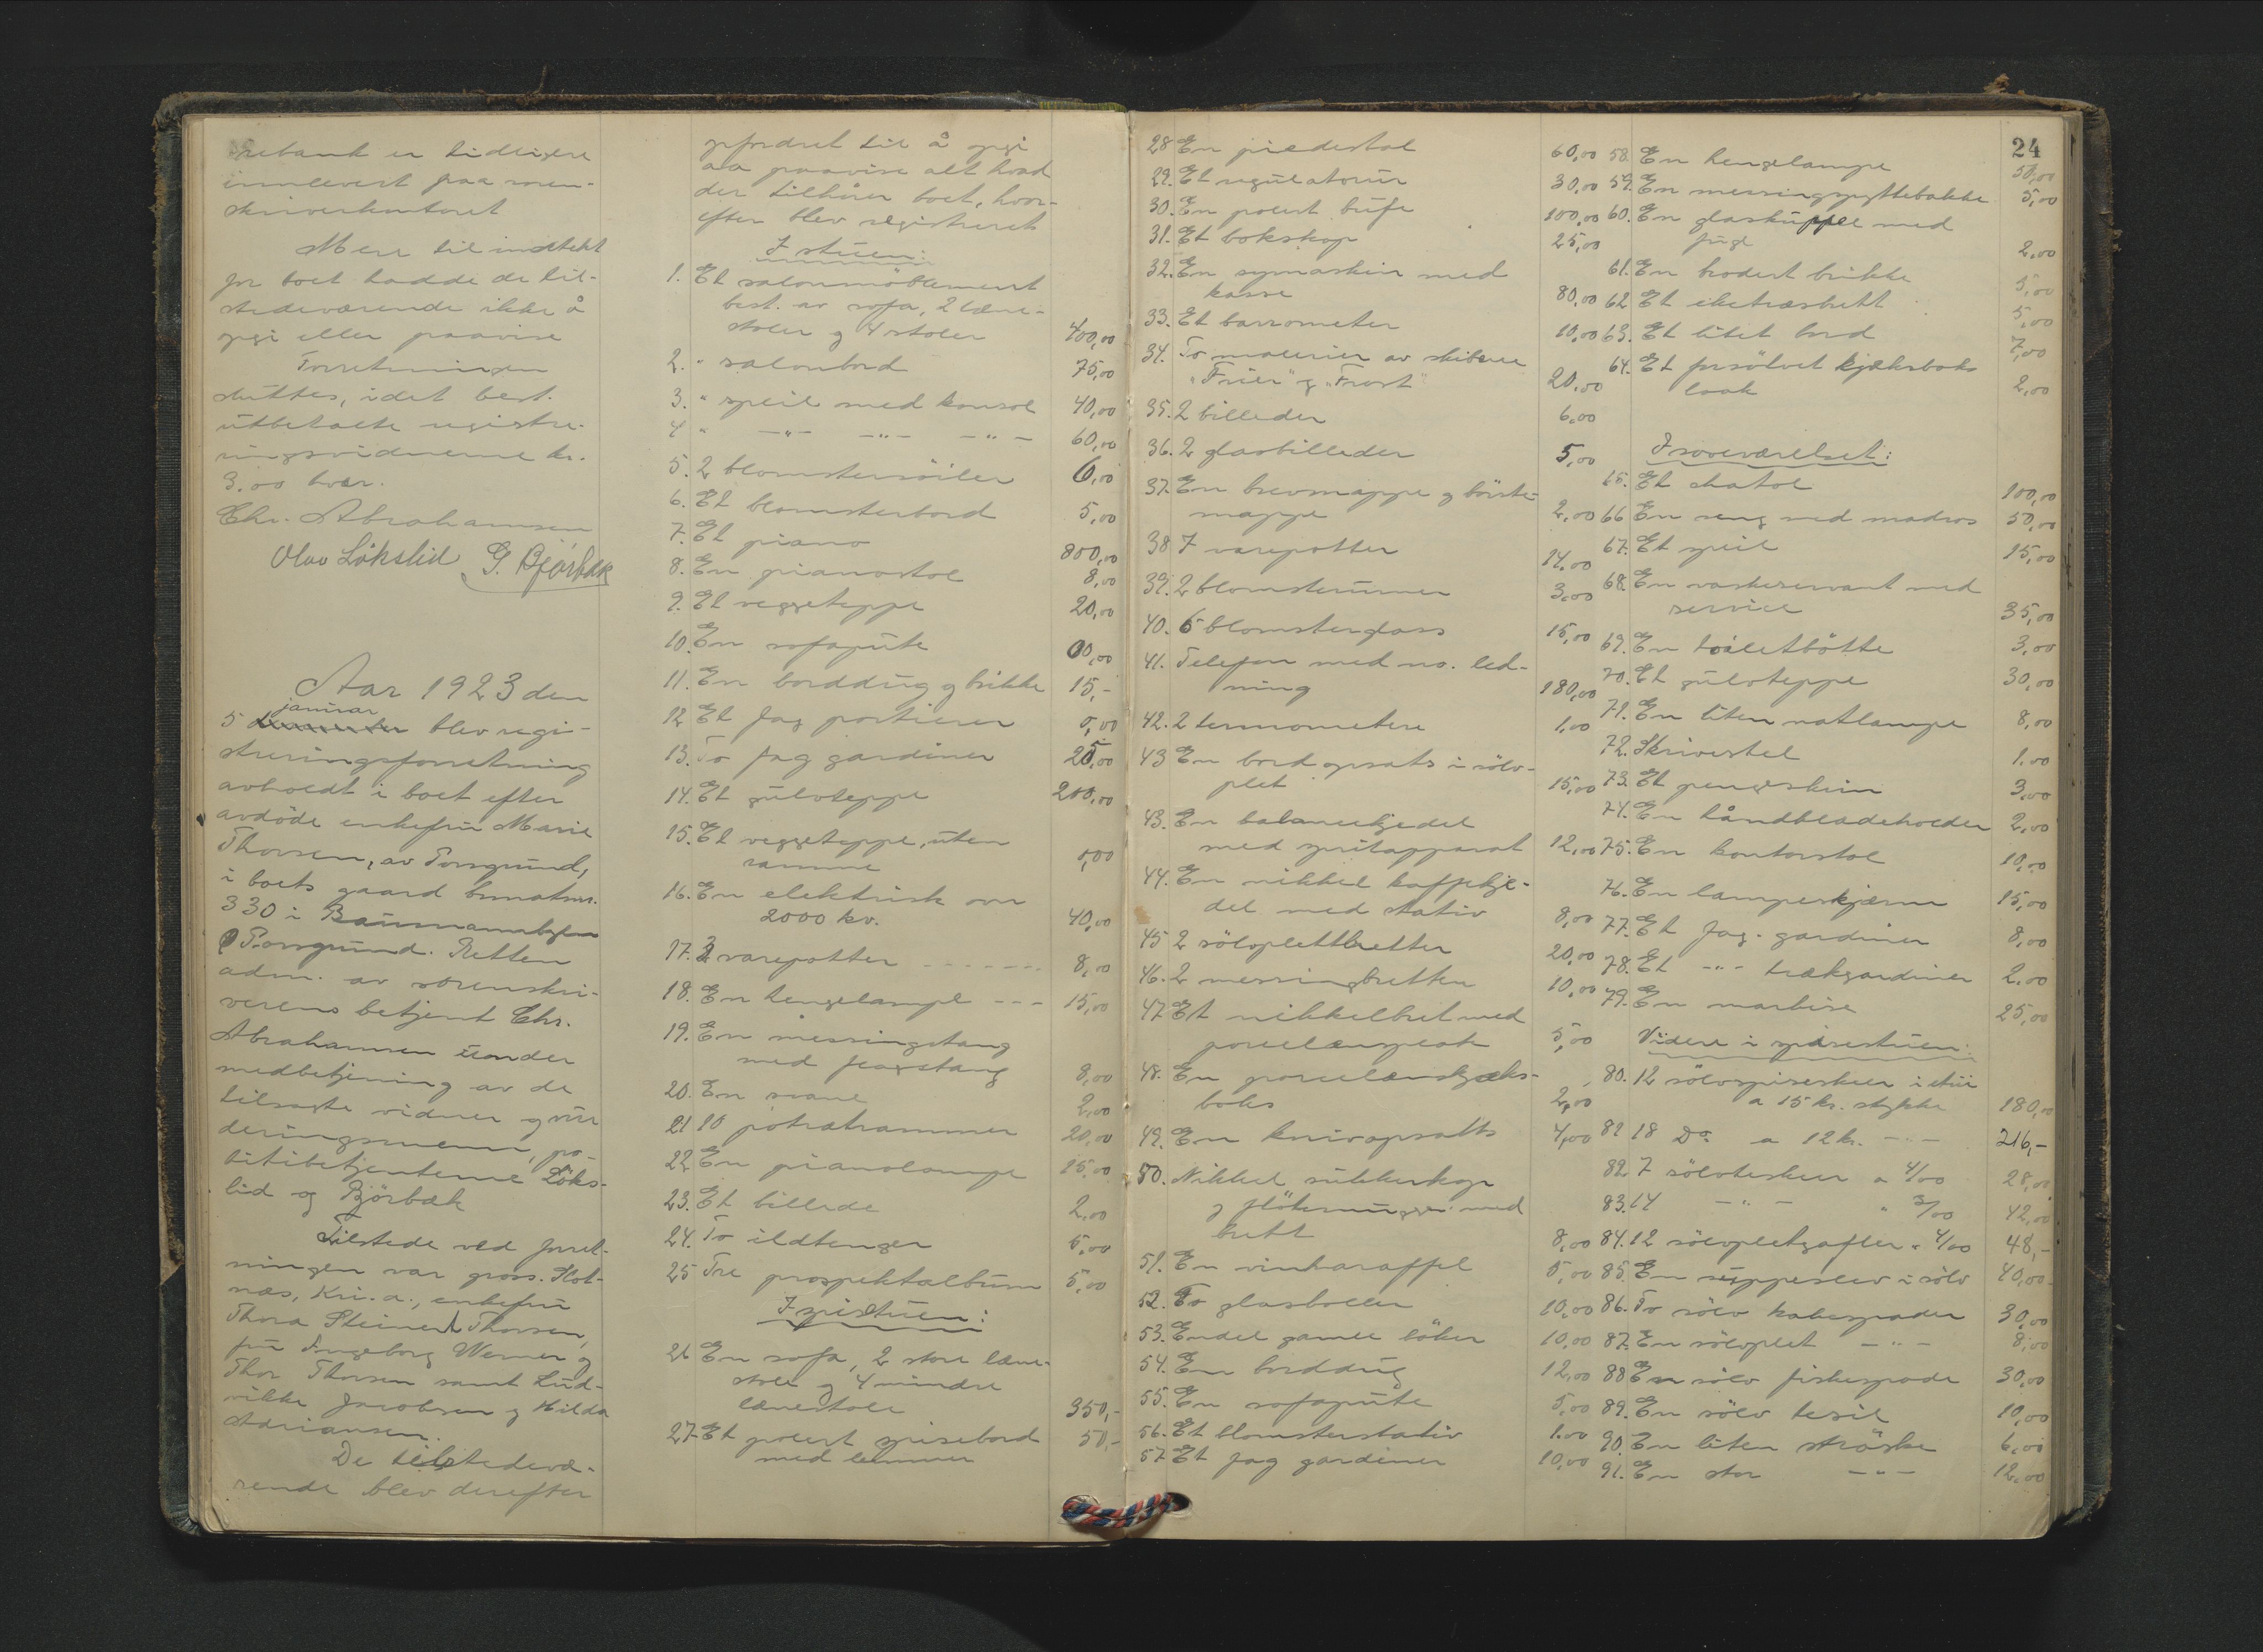 rebank er tidligere
innlevert paa soren-
skriverkontoret
Mere til inndtekt
for boet hadde de til-
stedeværende ikke å
opgi eller paavise
Forretningen
sluttes, idet best.
utbetalte registre-
ringsvidnerne kr.
3,00 hver.
Chr. Abrahamsen
Olav Lökslid G. Bjørbæk
Aar 1923 den
januar
5 blev regi-
streringsforretning
avholdt i boet efter
avdöde enkefru Marie
Thorsen, av Porsgrund,
i boets gaard bvmatnr.
330 i
Porsgrund. Retten
adm. av sorenskri-
verens betjent Chr.
Abrahamsen under
medbetjening av de
tilsagte vidner og vur
deringsmenn, po-
litibetjenterne Löks-
lid og Björbæk
Tilstede ved forret-
ningen var gross. Slot-
næs, Kr.a., enkefru
Thora Steinert Thorsen,
fru Ingeborg Werner og
Thor Thorsen samt Lud-
vikke Jacobsen og Hilda
Adriansen.
De tilstedevæ-
rende blev derefter
opfordret til å opgi
aa paavise alt hvad
der tilhører boet, hvor-
efter blev registreret
I stuen:
1. Et salonmöblement
best. av sofa, 2 læne-
stoler og 4 stoler 400,00
2. " salonbord 75,00
3. " speil med konsol 40,00
4 " -"- -"- -"- 60,00
5. 2 blomstersöiler 6,00
6. Et blomsterbord 5,00
7. Et piano 800,00
8. En pianostol 8,00
9. Et veggeteppe 20,00
10. En sofapute 00,00
11. En borddug og brikke 15,-
12 Et fag portierer 0,00
13. To fag gardiner 25,00
14. Et gulvteppe 200,00
15. Et veggeteppe, uten
ramme 0,00
16. En elektrisk ovn
2000 kv. 40,00
17. 2 varepotter ------- 8,00
18. En hengelampe --- 15,00
19. En messingstang
med flagstang 8,00
20. En svane 2,00
21 10 potrætrammer 20,00
22 En pianolampe 15,00
23. Et billede 2,00
24. To ildtenger 5,00
25 Tre prospektalbum 5,00
I spisstuen:
26 En sofa, 2 store læne-
stole og 4 mindre
lænestole 350,-
27. Et polert spisebord 50,-
med lemmer
28 En piedestal 60,00
29. Et regulatorur 30,00
30. En polert bufe 100,00
31. Et bokskap 25,00
32. En symaskin med
kasse 80,00
33. Et barrometer 10,00
34. To malerier av skibene
"Friér" og "Frost" 20,00
35. 2 billeder 6,00
36. 2 glasbilleder 5,00
37. En brevmappe og börste-
mappe 2,00
38 7 varepotter 14,00
39. 2 blomsterurner 3,00
40. 5 blomsterglass 15,00
41. Telefon med no. led-
ning 180,00
42. 2 termometere 1,00
43 En bord opsats i sölv-
plet 15,00
43. En balansekjedel
med spritapparat 12,00
44. En nikkel kaffekje-
del med stativ 8,00
45 2 sölvplettbretter 20,00
46. 2 messingbretter 10,00
47 Et nikkelbret med
porselænsplate 5,00
48. En porselænskjæks-
boks 2,00
49. En knivopsatts 4,00
50. Nikkel sukkerkop
og flötemugge med
brett 8,00
51. En vinkaraffel 5,00
52. To glasboller 10,00
53. Endel gamle böker 10,00
54. En borddug 12,00
55. En sofapute 5,00
56. Et blomsterstativ 1.00
57 Et fag gardiner 10,00
24
58. En hengelampe 50,00
59. En messingspyttebakke 5,00
60. En glaskuppel med
fugl 2,00
61. En brodert brikke 5,00
62 Et eketræsbrett 5,00
63. Et litet bord 7,00
64. Et forsölvet kjæksboks
laak 2,00
I soveværelset:
65. Et chatol 100,00
66 En seng med madras 50,00
67. Et speil 15,00
68. En vaskeservant med
service 35,00
69. En toiletbötte 3,00
70. Et gulvteppe 30,00
71. En liten natlampe 8,00
72. Skrivestel 1.00
73. Et pengeskrin 3,00
74. En håndklædeholder 2,00
75. En kontorstol 10,00
76. En lampeskjærm 15,00
77. Et fag. gardiner 8,00
78. Et -"- trækgardiner 2.00
79. En markise 25,00
Videre i spisestuen:
80. 12 sölvspiseskeer i etui
a 15 kr. stykke 180,00
81 18 Do a 12 kr. -"- 216,-
82. 7 sölvteskeer a 4/00 28,00
83. 14 -"- " 3/00 42,00
84. 12 sölvpletgafler " 4/00 48,-
85. En suppeslev i sölv 40,00
86. To sölv kakespader 30,00
87. En sölvplet -"- 8,00
88 En sölv fiskespade 30,00
89. En sölv tesil 10,00
90. En liten ströske 6,00
91. En stor -"- 12,00